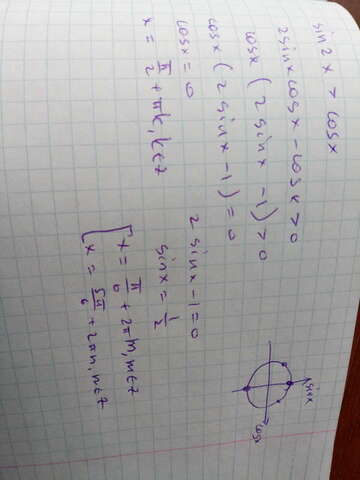 sin2x > cosx
2sinxcosx - cosx > 0
cosx (2sinx - 1) > 0
cosx (2sinx - 1) = 0
cosx = 0
x = π/2 + πk, k∈Z
2sinx - 1 = 0
sinx = 1/2
[x = π/6 + 2πn, n∈Z
x = 5π/6 + 2πm, m∈Z
sinx
cosx